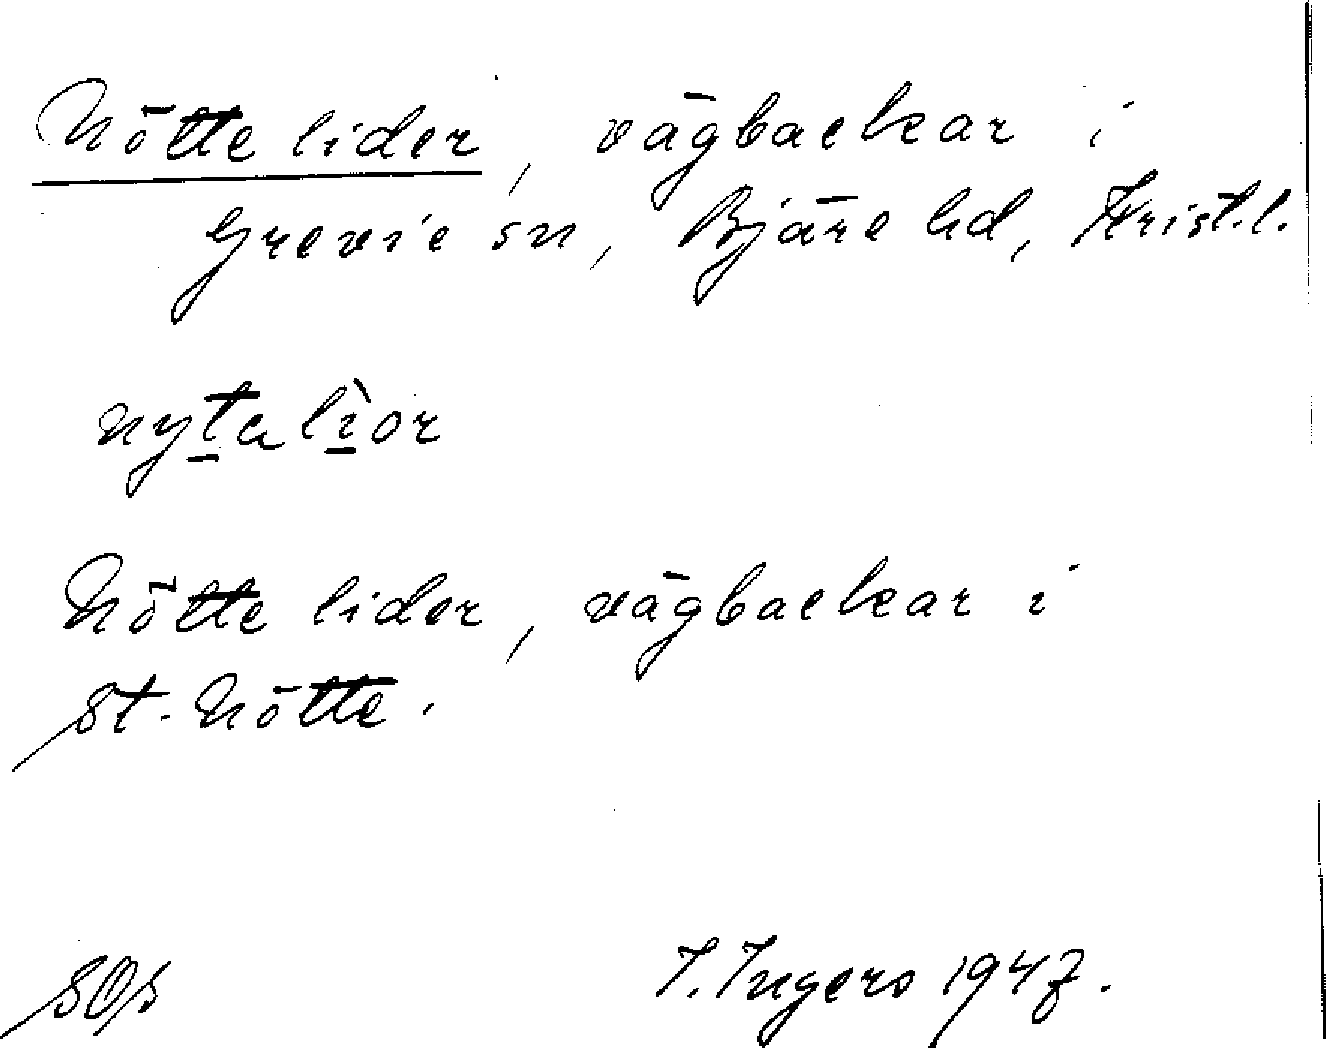 Nötte lider, vägbackar i
Grevie sn, Bjäre hd, Krist.l.
nyta lìor
Nötte lider, vägbackar i
St. Nötte.
SOS I. Ingers 1947.